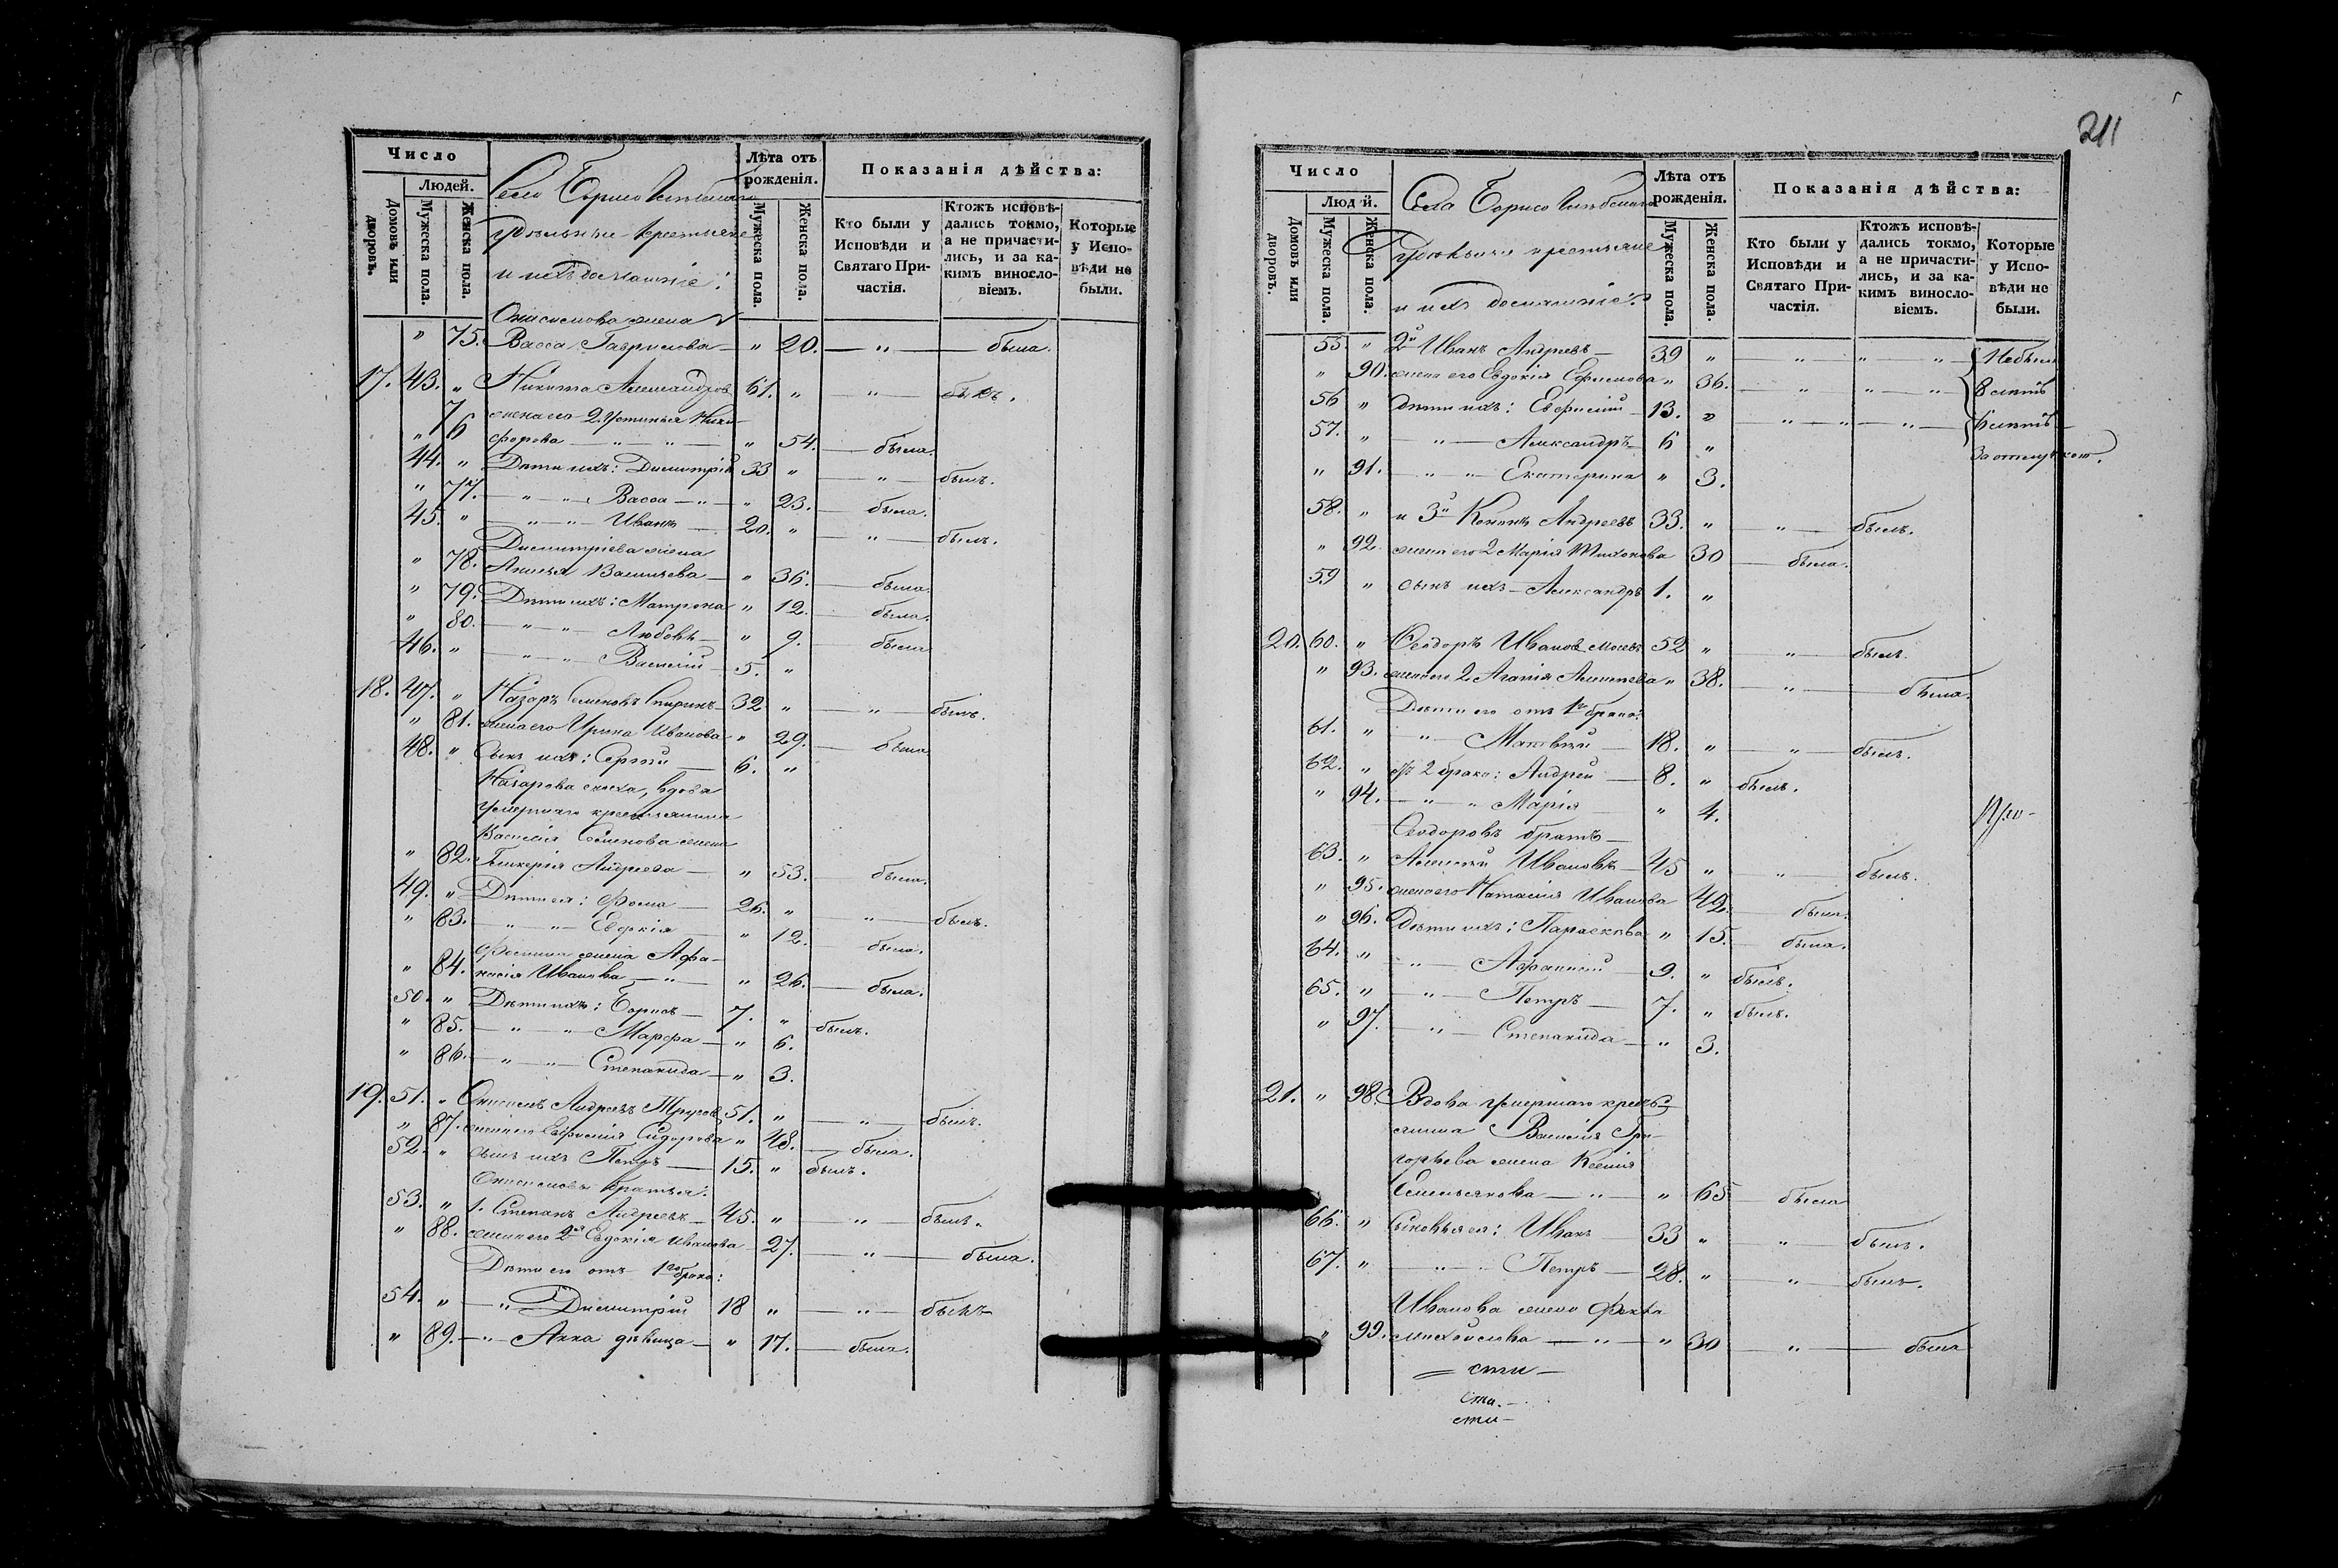 Число
Людей.
Домовъ или дворовъ.
Мужеска пола.
Женска пола.
Села Борисо Глѣбскаго
удѣльные крестьяне
и ихъ домашніе:
Лѣта отъ рожденія.
Мужеска пола.
Женска пола.
Показанія дѣйства:
Кто были у Исповѣди и Святаго Причастія.
Ктожъ исповѣдались токмо, а не причастились, и за какимъ винословіемъ.
Которые у Исповѣди не были.
Онисимова жена
" 75. Васса Гаврилова — " 20. — " — была.
17. 43. " Никита Александров 61. " — " — былъ.
жена его 2. Устинья Ники-
" 76 форова — " — " — " 54. — была.
44. " Дѣти ихъ: Димитрій 33 " — " — былъ.
" 77. — " — " Васса — " — " 23. — была.
45. " — " — " Иванъ — 20. " — " — былъ.
Димитріева жена
" 78. Васильева — " 36. — была.
" 79. Дѣти ихъ: Матрона " 12. — была.
" 80. — " — " Любовь — " 9. — была
46. " — " — " Василій — 5. "
18. 47. " Назаръ Семеновъ 32 " — " — былъ.
" 81. жена его Ирина Иванова " 29. — была
48. " Сынъ ихъ: Сергій — 6. "
Назарова сноха, вдова
умершаго крестьянина
Василія Семенова жена
" 82. Гликерія Андреева — " 53. — была.
49. " Дѣти ея: Фома — 26. " — " — былъ.
" 83. — " — " Евдокія — " 12. — была.
Фомина жена Афа-
" 84. насія Иванова — " — " 26. — была.
50. " Дѣти ихъ: Борисъ — 7. " былъ.
" 85. — " — " Марфа — " 6.
" 86. — " — " Степанида — " 3.
19. 51. " Онисимъ Андреевъ 51. " — " — былъ.
" 87. жена его Евфимія Сидорова " 48. — была.
52. " сынъ ихъ Петръ — 15. " былъ.
Онисимовы братья:
53. " 1. Степанъ Андреевъ — 45. " — " — былъ.
" 88. жена его 2я Евдокія Иванова 27. — " — была.
Дѣти его отъ 1го брака:
54. " — " Димитрій 18 " — " — былъ
" 89. — " — Анна дѣвица — " 17. — была.
211
Число
Людей.
Домовъ или дворовъ.
Мужеска пола.
Женска пола.
Села Борисо Глѣбскаго
удѣльные крестьяне
и ихъ домашніе:
Лѣта отъ рожденія.
Мужеска пола.
Женска пола.
Показанія дѣйства:
Кто были у Исповѣди и Святаго Причастія.
Ктожъ исповѣдались токмо, а не причастились, и за какимъ винословіемъ.
Которые у Исповѣди не были.
55. " 2й Иванъ Андреевъ — 39 " — " " " — Небыли
" 90. жена его Евдокія Ефимова " 36. — " — " — 8 лѣтъ
56 " Дѣти ихъ: Евфимій — 13. " — " — " — " — 6 лѣтъ
57. " — " — Александръ — 6 " За отлучкою.
" 91. — " — " Екатерина " 3.
58. " и 3й Кононъ Андреевъ 33. " " — былъ.
" 92. жена его 2 Марія Тихонова 30 — была.
59 " сынъ ихъ — Александръ 1. "
20. 60. " Ѳеодоръ Ивановъ 52 " " — былъ.
" 93. жена его 2 Агапія Алексѣева " 38. — " — была.
Дѣти его отъ 1го брака:
61. " — " — Матвѣй — 18. " — " — былъ.
62. " 2 брака: Андрей — 8. " былъ.
" 94. — " — " Марія — " 4.
Ѳеодоровъ братъ —
63. " Алексѣй Ивановъ — 45 " " былъ.
" 95. жена его Наталія Иванова 42. — была.
" 96. Дѣти ихъ: Параскева " 15. — была.
64. " — " — Афанасій — 9. " былъ.
65. " — " — Петръ — 7. " былъ.
" 97. — " — Степанида — " 3.
21. " 98. Вдова умершаго кресть-
янина Василія Гри-
горьева жена Ксенія
Емельянова — " — " 65 — была
66. " Сыновья ея: Иванъ — 33 " " былъ.
67. " — " — " Петръ — 28. " " былъ.
Иванова жена Фекла
" 99. Михайлова — " — " 30 " — была